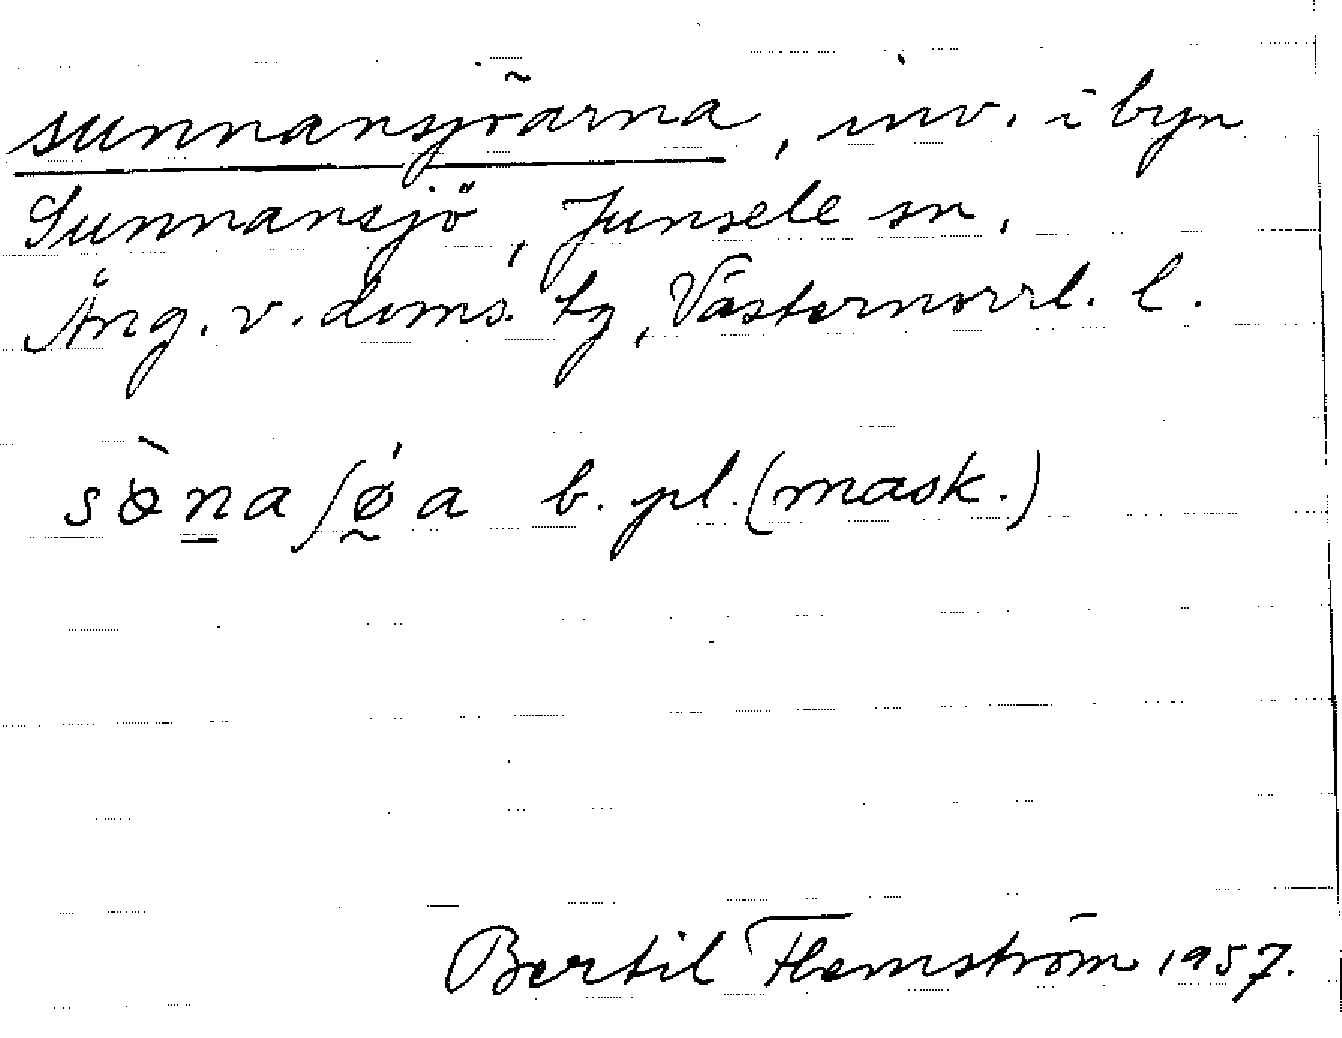 sunnansjöarna, inv. i byn
Sunnansjö, Junsele sn,
Ång. v. doms. tg, Västernorrl. l.
sὲnaʃøa b. pl. (mask.)
Bertil Flemström 1957.